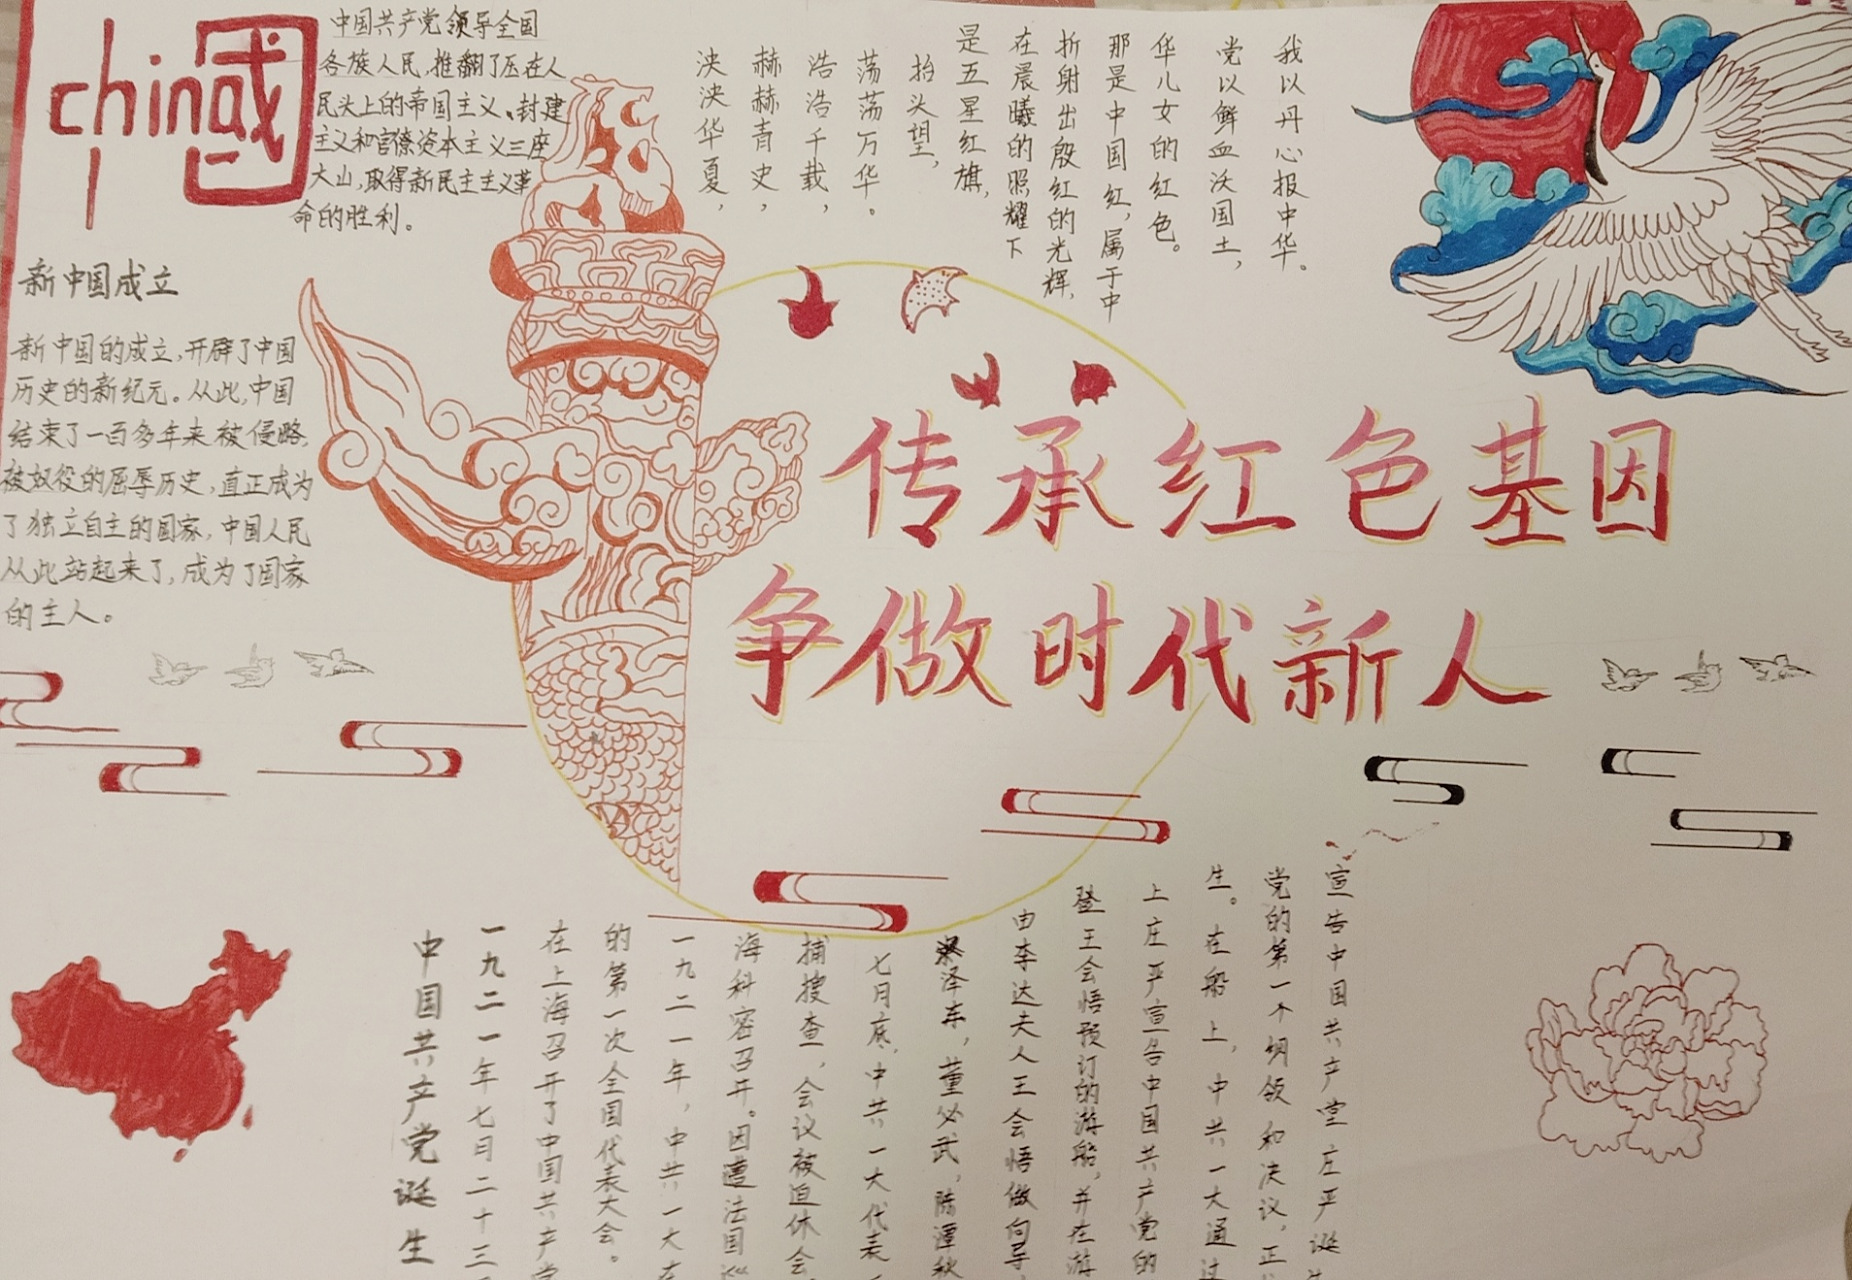 china
國
中国共产党领导全国
各族人民,推翻了压在人
民头上的帝国主义、封建
主义和官僚资本主义三座
大山,取得新民主主义革
命的胜利。
新中国成立
新中国的成立,开辟了中国
历史的新纪元。从此,中国
结束了一百多年来被侵略,
被奴役的屈辱历史,直正成为
了独立自主的国家,中国人民
从此站起来了,成为了国家
的主人。
泱泱华夏,
赫赫青史,
浩浩千载,
荡荡万华。
抬头望,
是五星红旗,
在晨曦的照耀下
折射出殷红的光辉,
那是中国红,属于中
华儿女的红色。
党以鲜血沃国土,
我以丹心报中华。
传承红色基因
争做时代新人
中国共产党诞生
一九二一年七月二十三
在上海召开了中国共产党
的第一次全国代表大会。
一九二一年,中共一大在
海科密召开。因遭法国巡
捕搜查,会议被迫休会。
七月底,中共一大代表
泽东,董必武,陈潭秋
由李达夫人王会悟做向导,
登王会悟预订的游船,并在游
上庄严宣告中国共产党的
生。在船上,中共一大通过
党的第一个纲领和决议,正
宣告中国共产堂庄严诞